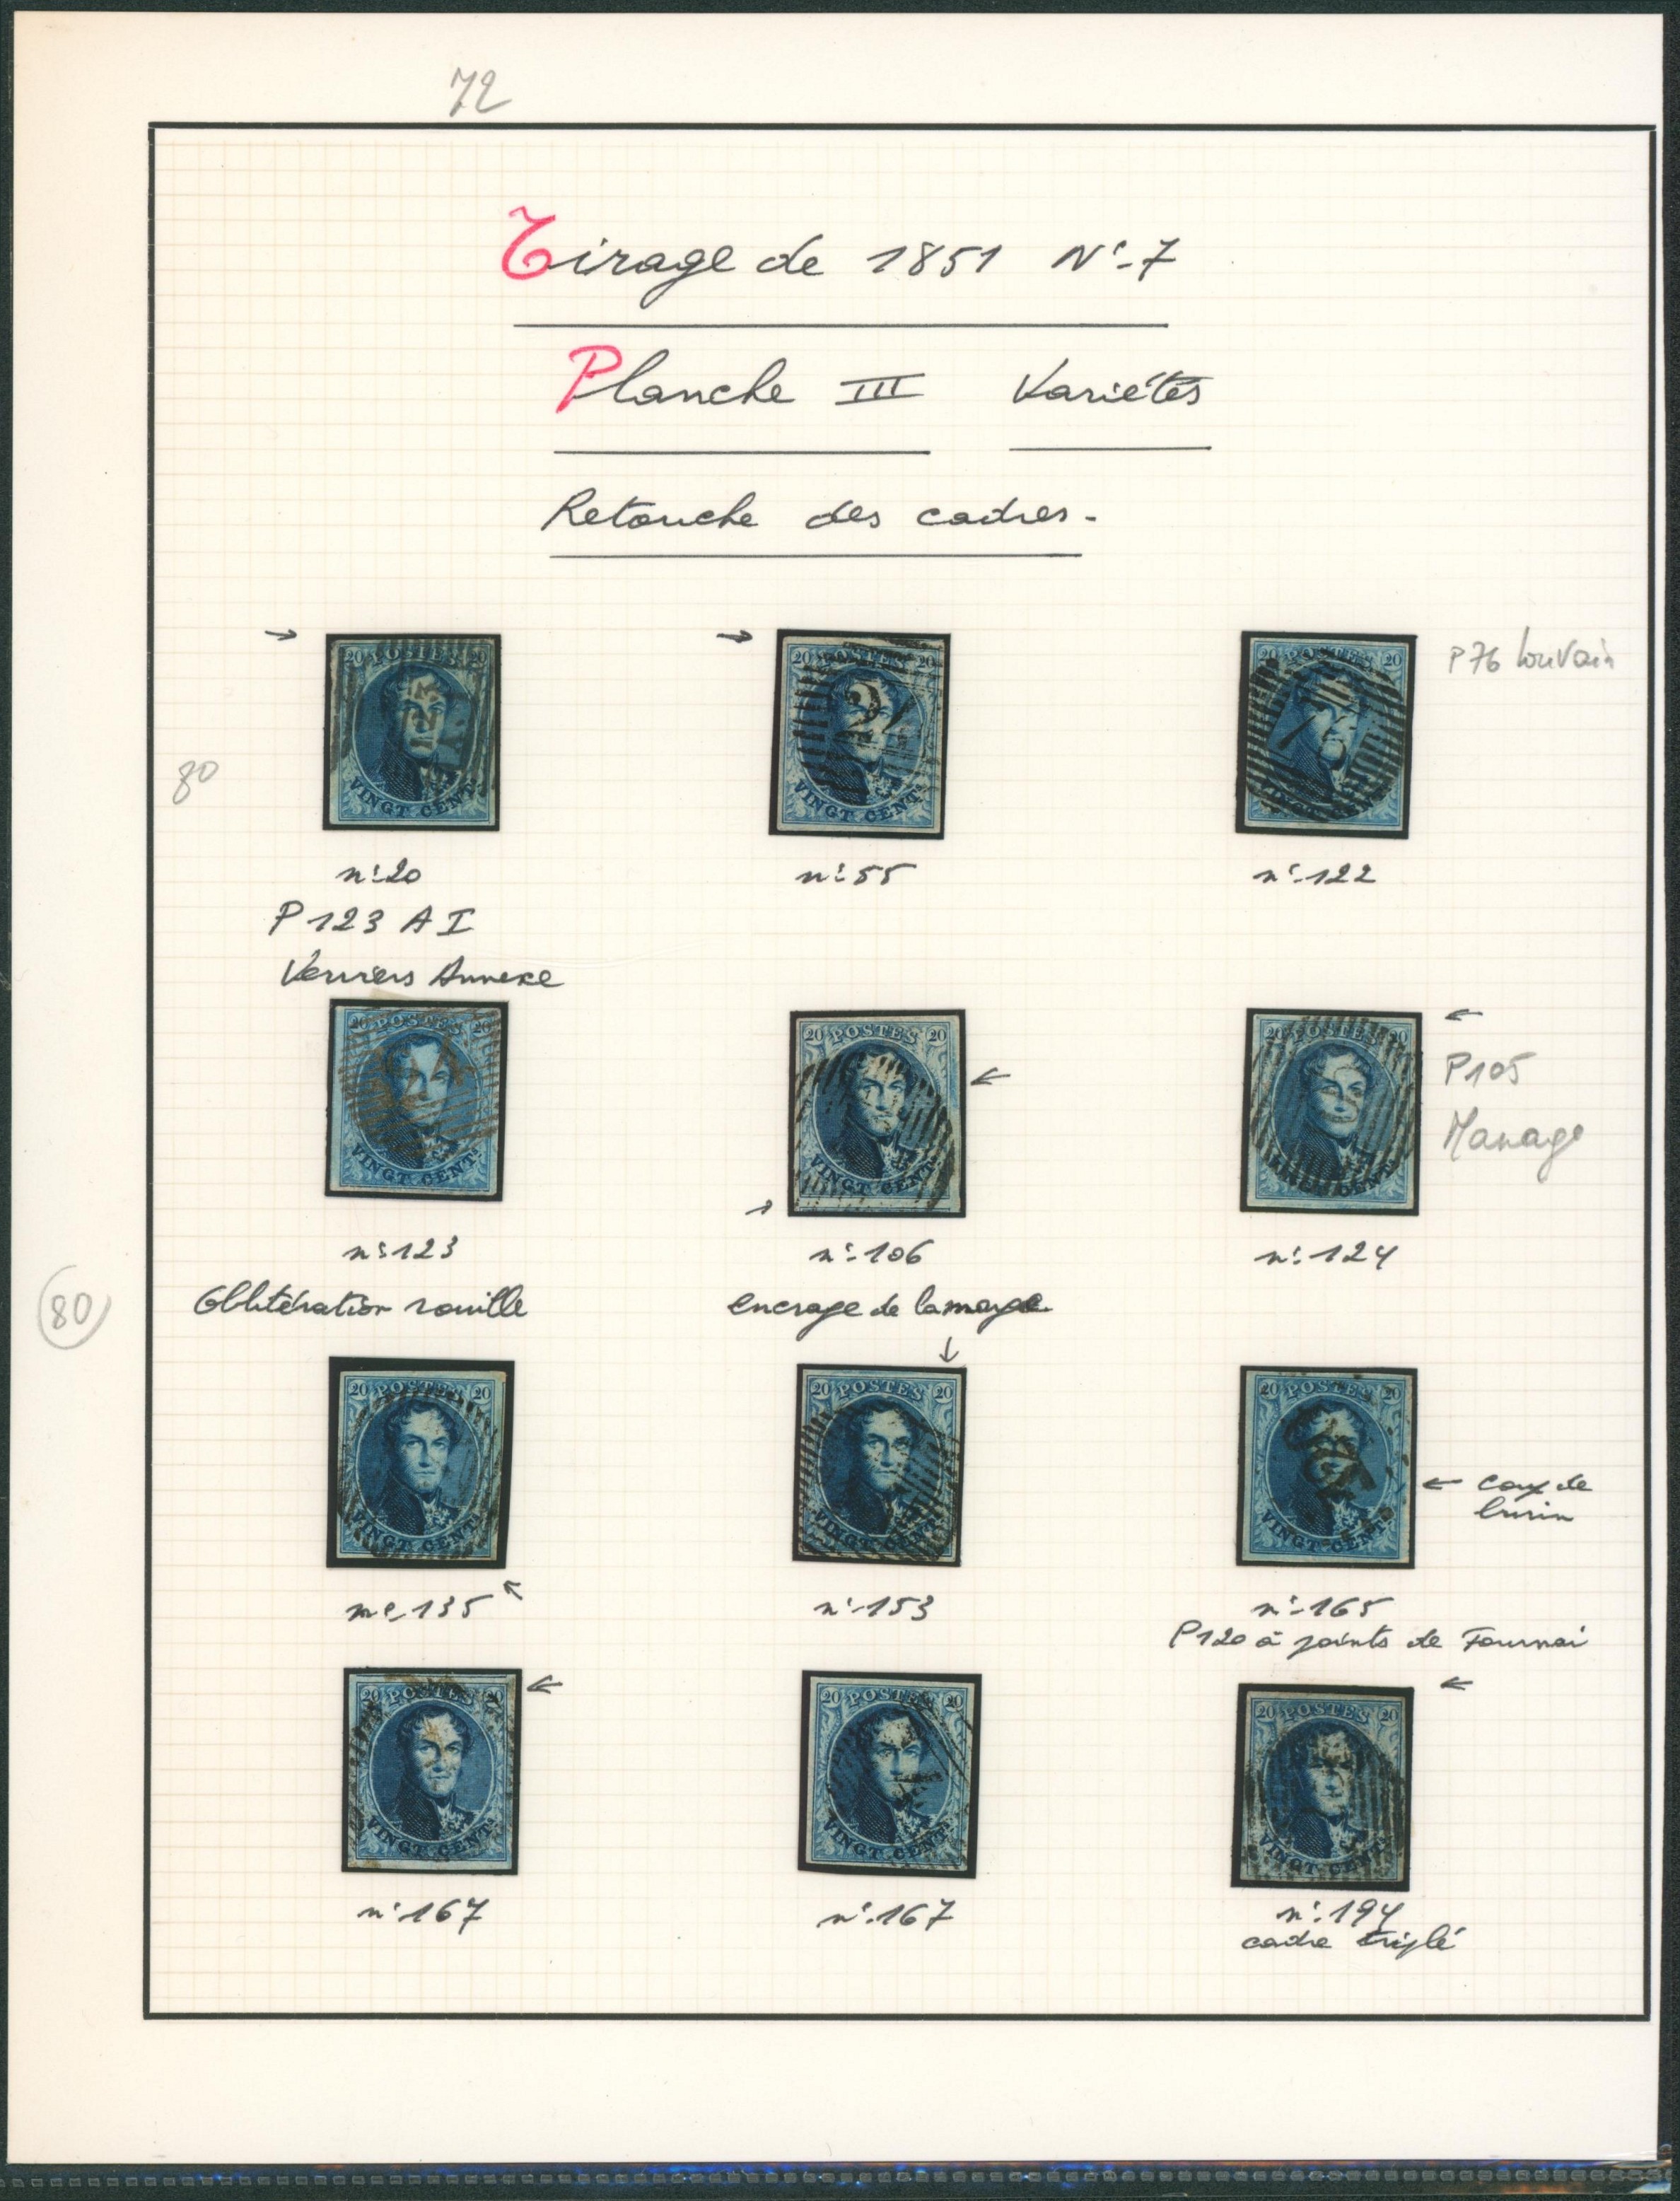 72
Tirage de 1851 N°-7
Planche III Variétés
Retouche des cadres-
20 POSTES 20
VINGT CENTS
20 POSTES 20
24
VINGT CENTS
20 POSTES 20
P76 Louvain
80
n°20
n°55
n°-122
P123 A I
Verviers Annexe
20 POSTES 20
VINGT CENTS
20 POSTES 20
VINGT CENTS
20 POSTES 20
VINGT CENTS
P105
Manage
n°123
n°-106
n°-124
80
Oblitération rouille
encrage de la marge
20 POSTES 20
VINGT CENTS
20 POSTES 20
VINGT CENTS
20 POSTES 20
VINGT CENTS
coup de
burin
n°-135
n°-153
n°-165
P120 à points de Tournai
20 POSTES 20
VINGT CENTS
20 POSTES 20
VINGT CENTS
20 POSTES 20
VINGT CENTS
n°167
n°-167
n°-194
cadre triplé